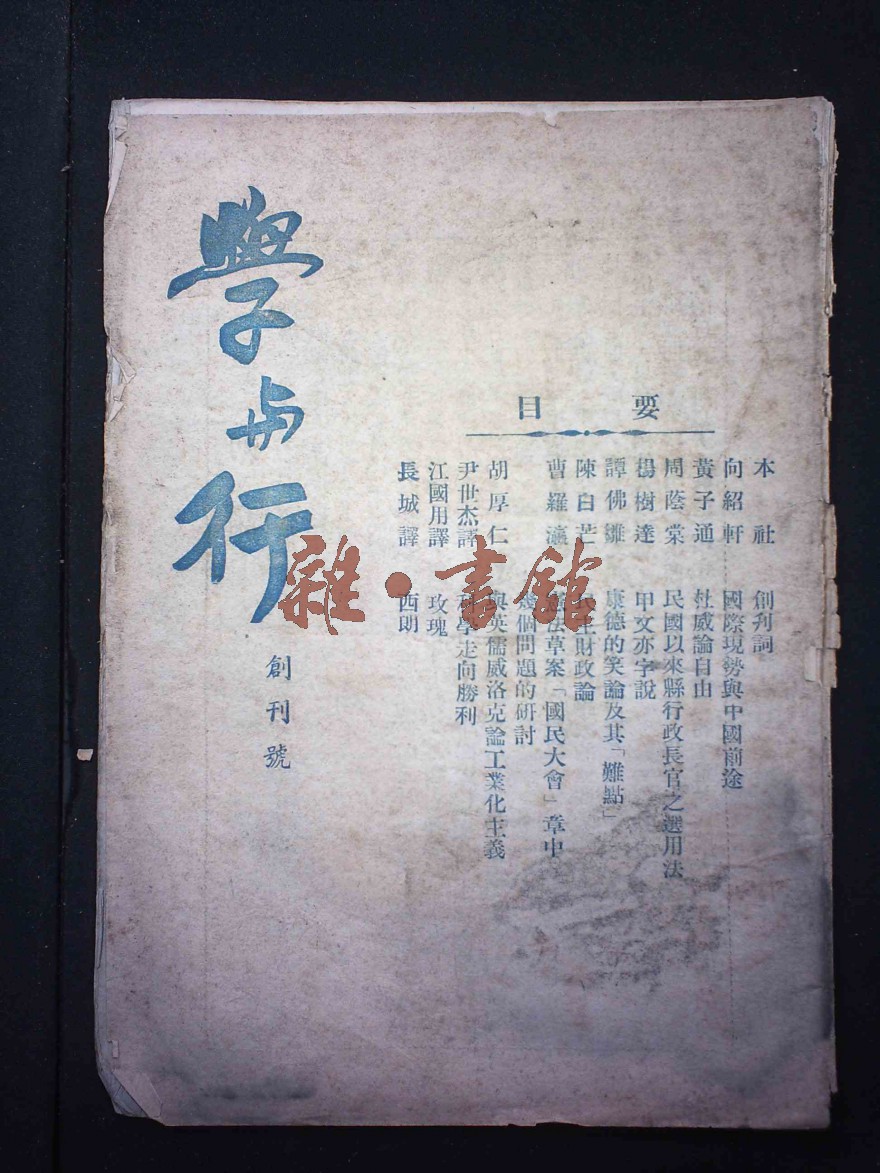 要目
本社 創刊詞
向紹軒 國際現勢與中國前途
黃子通 杜威論自由
周蔭棠 民國以來縣行政長官之選用法
楊樹達 甲文亦字說
譚佛雛 康德的笑論及其「難點」
陳白芒 財政論
曹羅瀛 憲法草案「國民大會」章中
幾個問題的研討
胡厚仁 與英儒威洛克論工業化主義
尹世杰譯 科學走向勝利
江國用譯 玫瑰
長城譯 西朗
學與行
創刊號
雜·書館